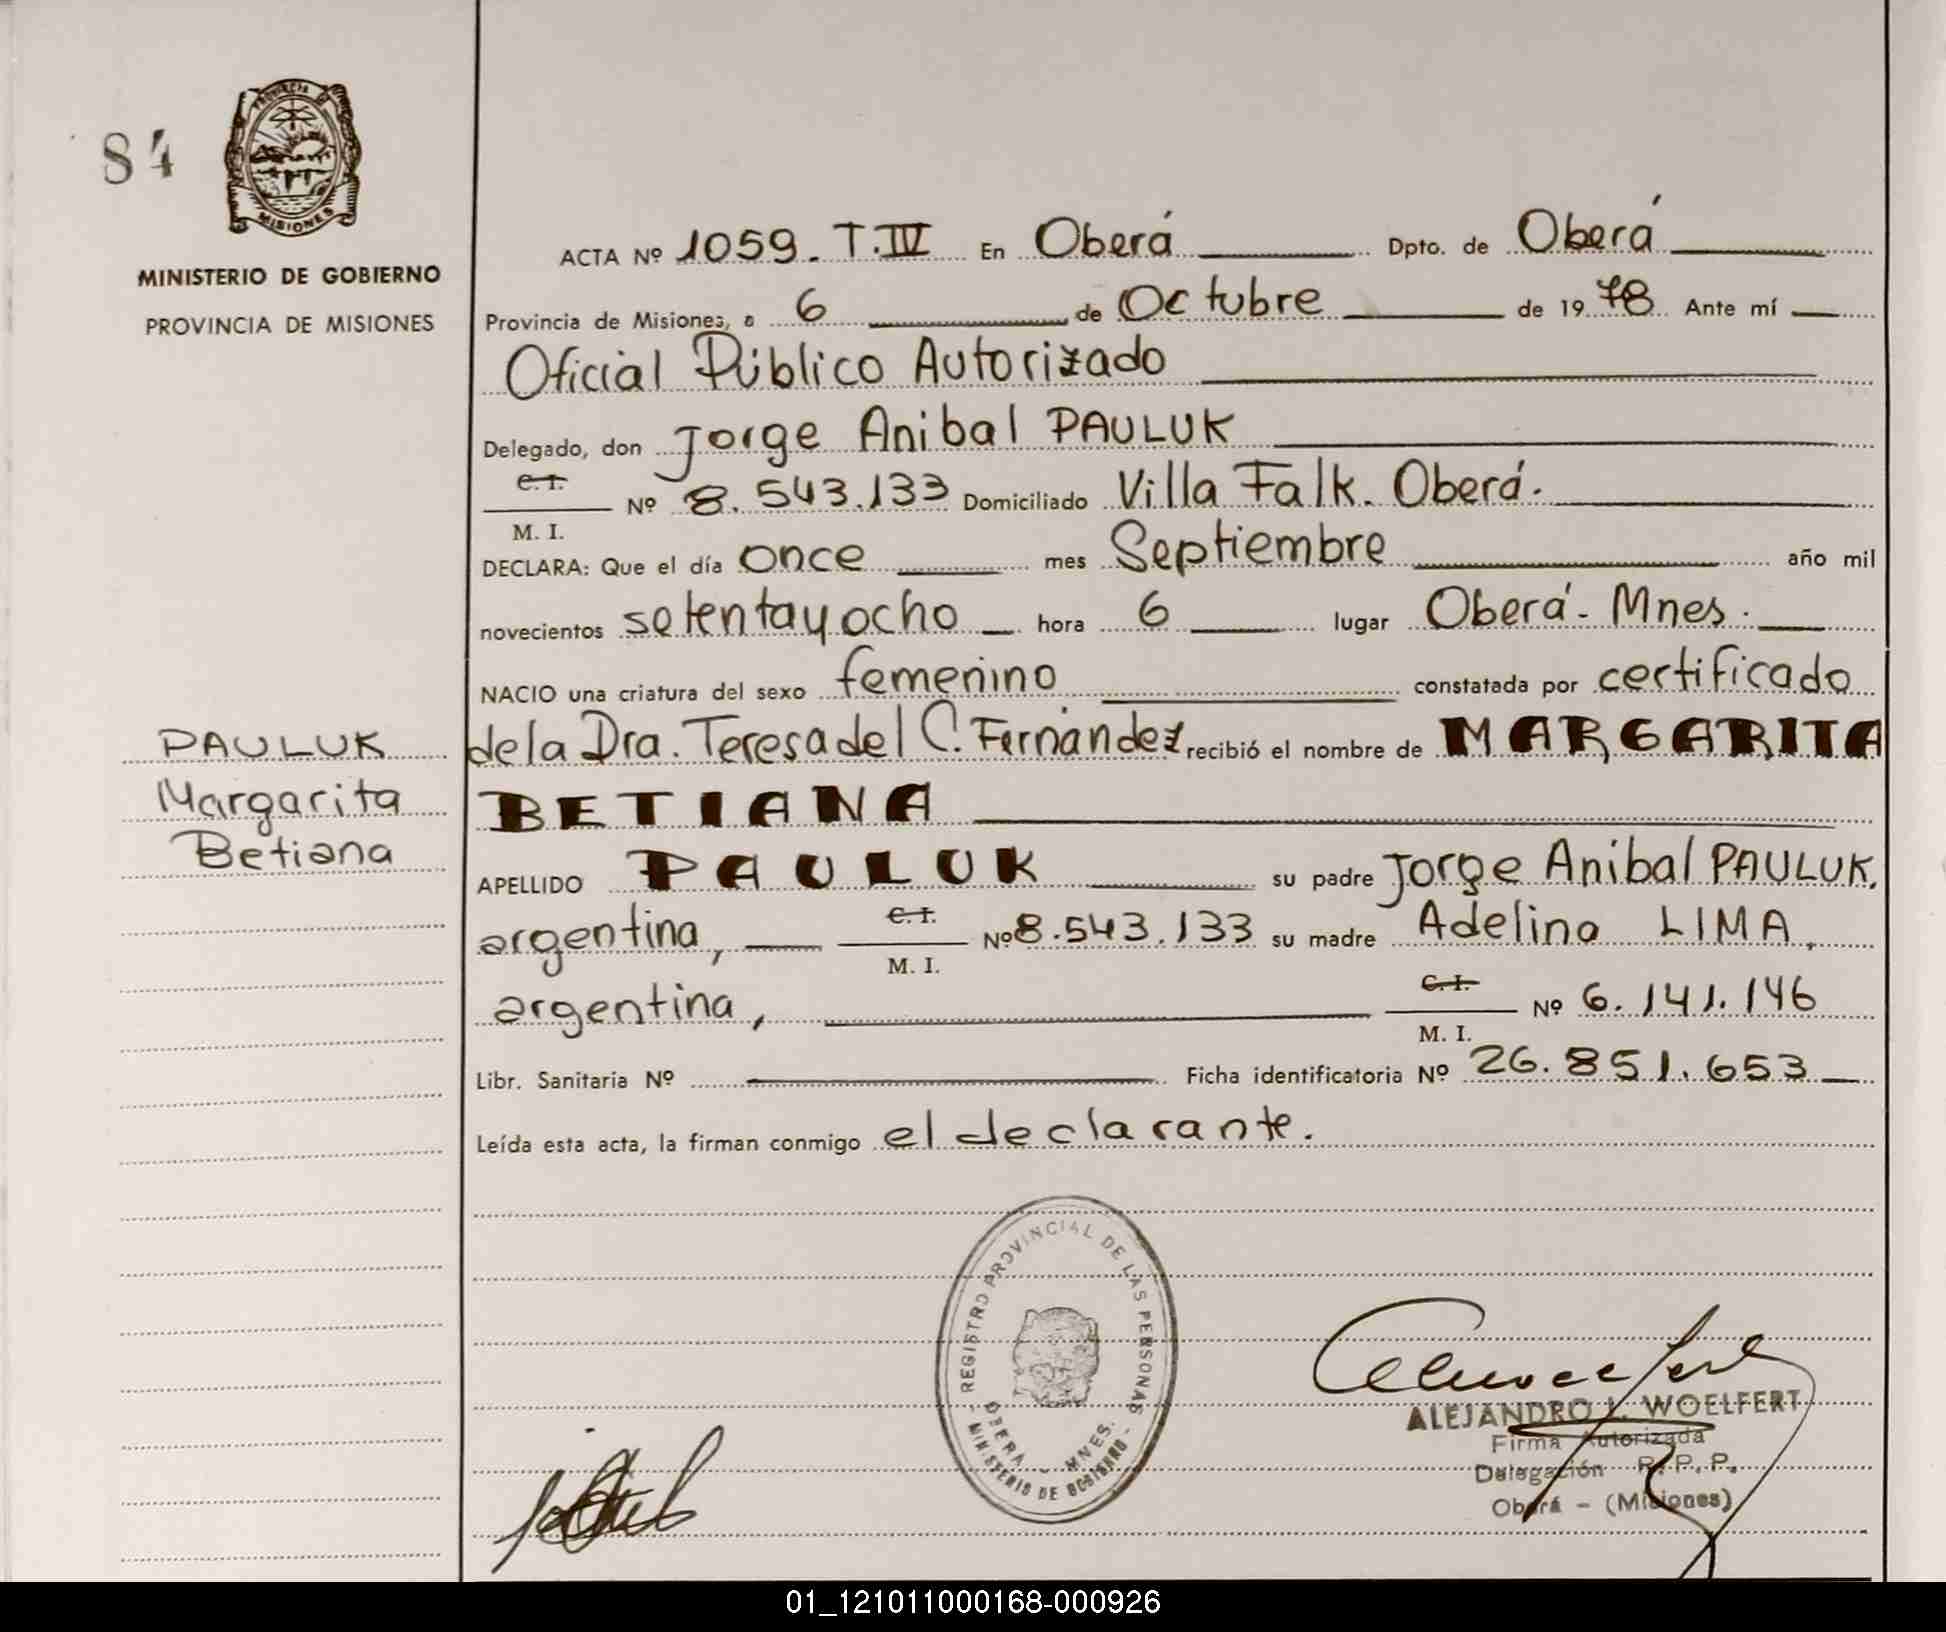 84
PROVINCIA DE
MISIONES
MINISTERIO DE GOBIERNO
PROVINCIA DE MISIONES
ACTA Nº 1059. T.IV En Oberá Dpto. de Oberá
Provincia de Misiones, a 6 de Octubre de 1978 Ante mí
Oficial Público Autorizado
Delegado, don Jorge Anibal PAULUK
C. I.
Nº 8.543.133 Domiciliado Villa Falk. Oberá.
M. I.
DECLARA: Que el día once mes Septiembre año mil
novecientos setentayocho hora 6 lugar Oberá - Mnes.
NACIO una criatura del sexo femenino constatada por certificado
dela Dra. Teresa del C. Fernández recibió el nombre de MARGARITA
BETIANA
APELLIDO PAULUK su padre Jorge Anibal PAULUK.
C. I.
argentina, Nº 8.543.133 su madre Adelina LIMA,
M. I.
C. I.
argentina, Nº 6.141.146
M. I.
Libr. Sanitaria Nº Ficha identificatoria Nº 26.851.653
Leída esta acta, la firman conmigo el declarante.
PAULUK
Margarita
Betiana
REGISTRO PROVINCIAL DE LAS PERSONAS
OBERÁ - MNES.
- MINISTERIO DE GOBIERNO -
ALEJANDRO L. WOELFERT
Firma Autorizada
Delegación R. P. P.
Oberá - (Misiones)
01_121011000168-000926